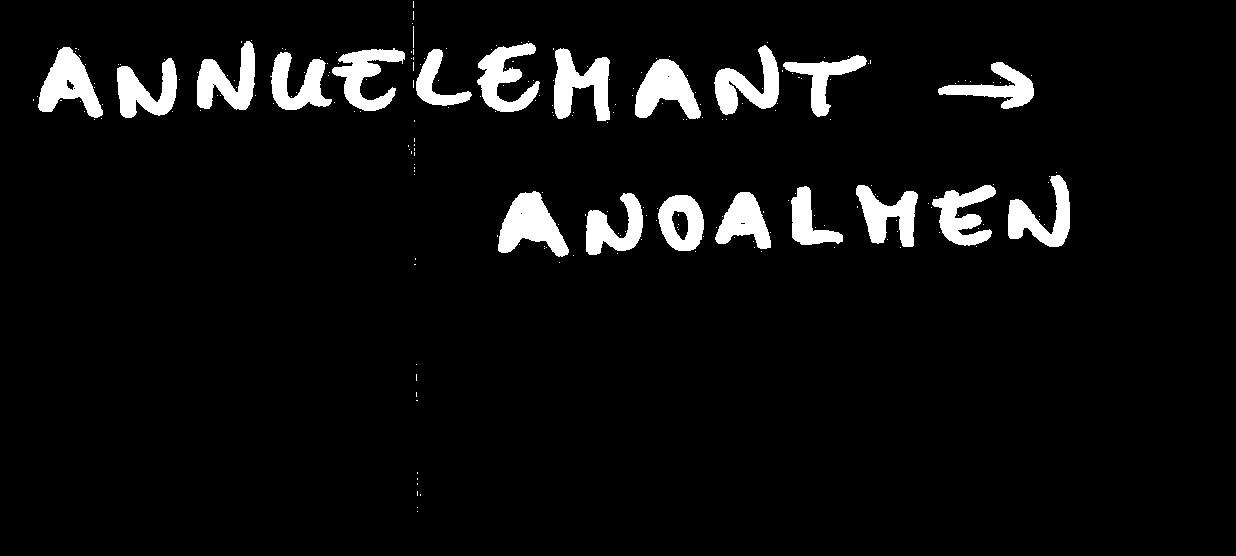 ANNUELEMANT →
ANOALMEN